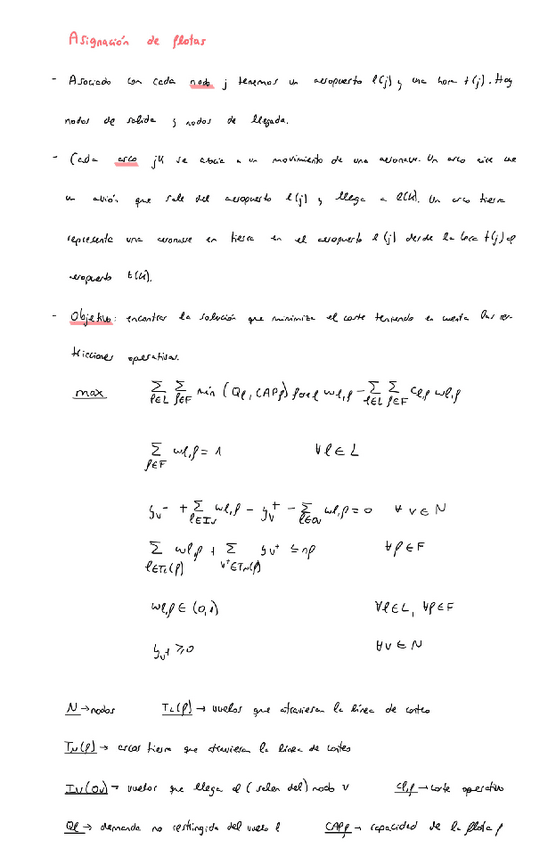 Asignación de flotas
- Asociado con cada nodo j tenemos un aeropuerto l(j) y una hora t(j). Hay
nodos de salida y nodos de llegada.
- Cada arco jk se asocia a un movimiento de una aeronave. Un arco aire une
un avión que sale del aeropuerto l(j) y llega a l(k). Un arco tierra
representa una aeronave en tierra en el aeropuerto l(j) desde la hora t(j) al
aeropuerto t(k).
- Objetivo: encontrar la solución que minimiza el coste teniendo en cuenta las res-
tricciones operativas.
max ∑_{l∈L} ∑_{f∈F} min (Ql, CAPf) farel wl,f - ∑_{l∈L} ∑_{f∈F} Cl,f wl,f
∑_{f∈F} wl,f = 1 ∀l∈L
yv⁻ + ∑_{l∈Iv} wl,f - yv⁺ - ∑_{l∈Ov} wl,f = 0 ∀v∈N
∑_{l∈TL(f)} wl,f + ∑_{v⁺∈TN(f)} yv⁺ ≤ nf ∀f∈F
wl,f ∈ (0,1) ∀l∈L, ∀f∈F
yv⁺ ≥ 0 ∀v∈N
N → nodos TL(f) → vuelos que atraviesan la línea de conteo
TN(f) → arcos tierra que atraviesan la línea de conteo
Iv(Ov) → vuelos que llega al (salen del) nodo v Cl,f → coste operativo
Ql → demanda no restringida del vuelo l CAPf → capacidad de la flota f